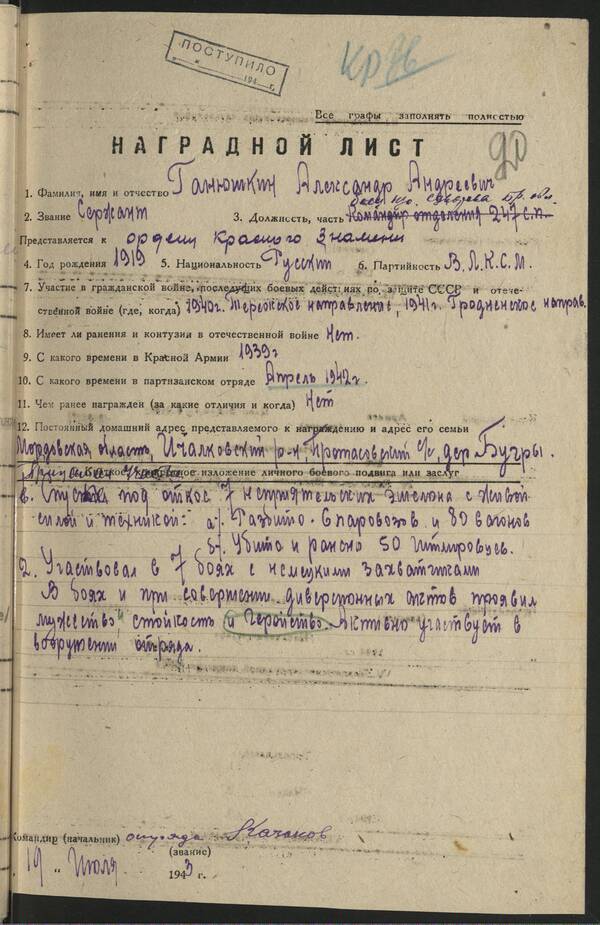 ПОСТУПИЛО
194 г.
Все графы заполнять полностью
20
НАГРАДНОЙ ЛИСТ
1. Фамилия, имя и отчество Ганюшкин Александр Андреевич
2. Звание Сержант 3. Должность, часть Командир отделения 247 с.п.
Представляется к ордену Красного Знамени
4. Год рождения 1919 5. Национальность Русский 6. Партийность В.Л.К.С.М.
7. Участие в гражданской войне, последующих боевых действиях по защите СССР и отече-
ственной войне (где, когда) 1940г. направление, 1941г. Гродненское направ.
8. Имеет ли ранения и контузии в отечественной войне Нет.
9. С какого времени в Красной Армии 1939г
10. С какого времени в партизанском отряде Апрель 1942г.
11. Чем ранее награжден (за какие отличия и когда) Нет
12. Постоянный домашний адрес представляемого к награждению и адрес его семьи
Мордовская область, Ичалковский р-н, Протасовский с/с, дер Бугры.
изложение личного боевого подвига или заслуг
под откос 7 неприятельских эшелона с живой
силой и техникой: а/. Разбито 8 паровозов и 80 вагонов
б/. Убито и ранено 50 Гитлеровцев.
2. Участвовал в 7 боях с немецкими захватчиками
В боях и при совершении диверсионных актов проявил
мужество, стойкость и Геройство. Активно участвует в
вооружении отряда.
Командир (начальник) отряда
(звание)
19 „ Июля 1943 г.